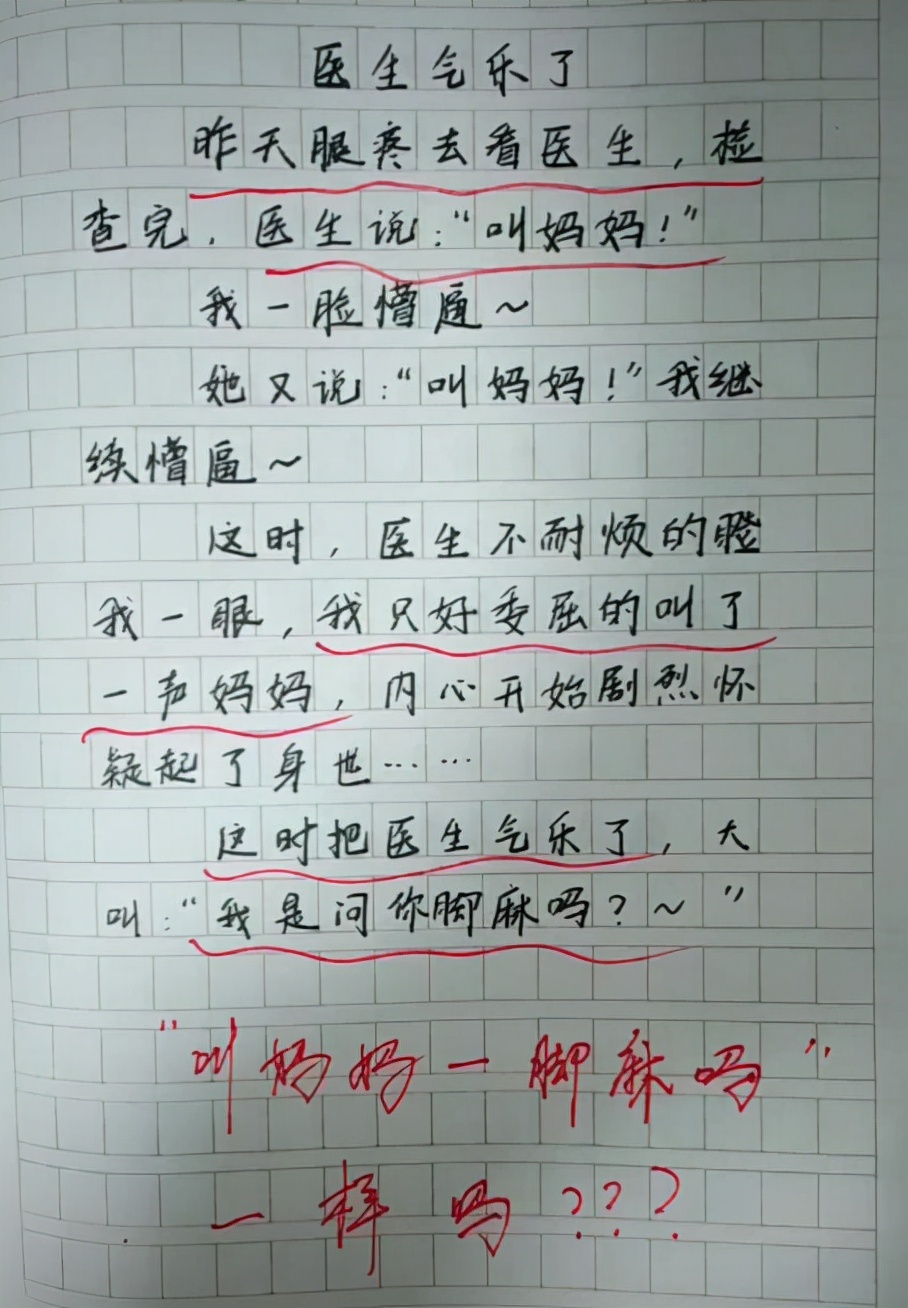 医生气乐了
昨天腿疼去看医生，检
查完，医生说："叫妈妈！"
我一脸懵逼~
她又说："叫妈妈！"我继
续懵逼~
这时，医生不耐烦的瞪
我一眼，我只好委屈的叫了
一声妈妈，内心开始剧烈怀
疑起了身世……
这时把医生气乐了，大
叫："我是问你脚麻吗？~"
"叫妈妈一脚麻吗"
一样吗???